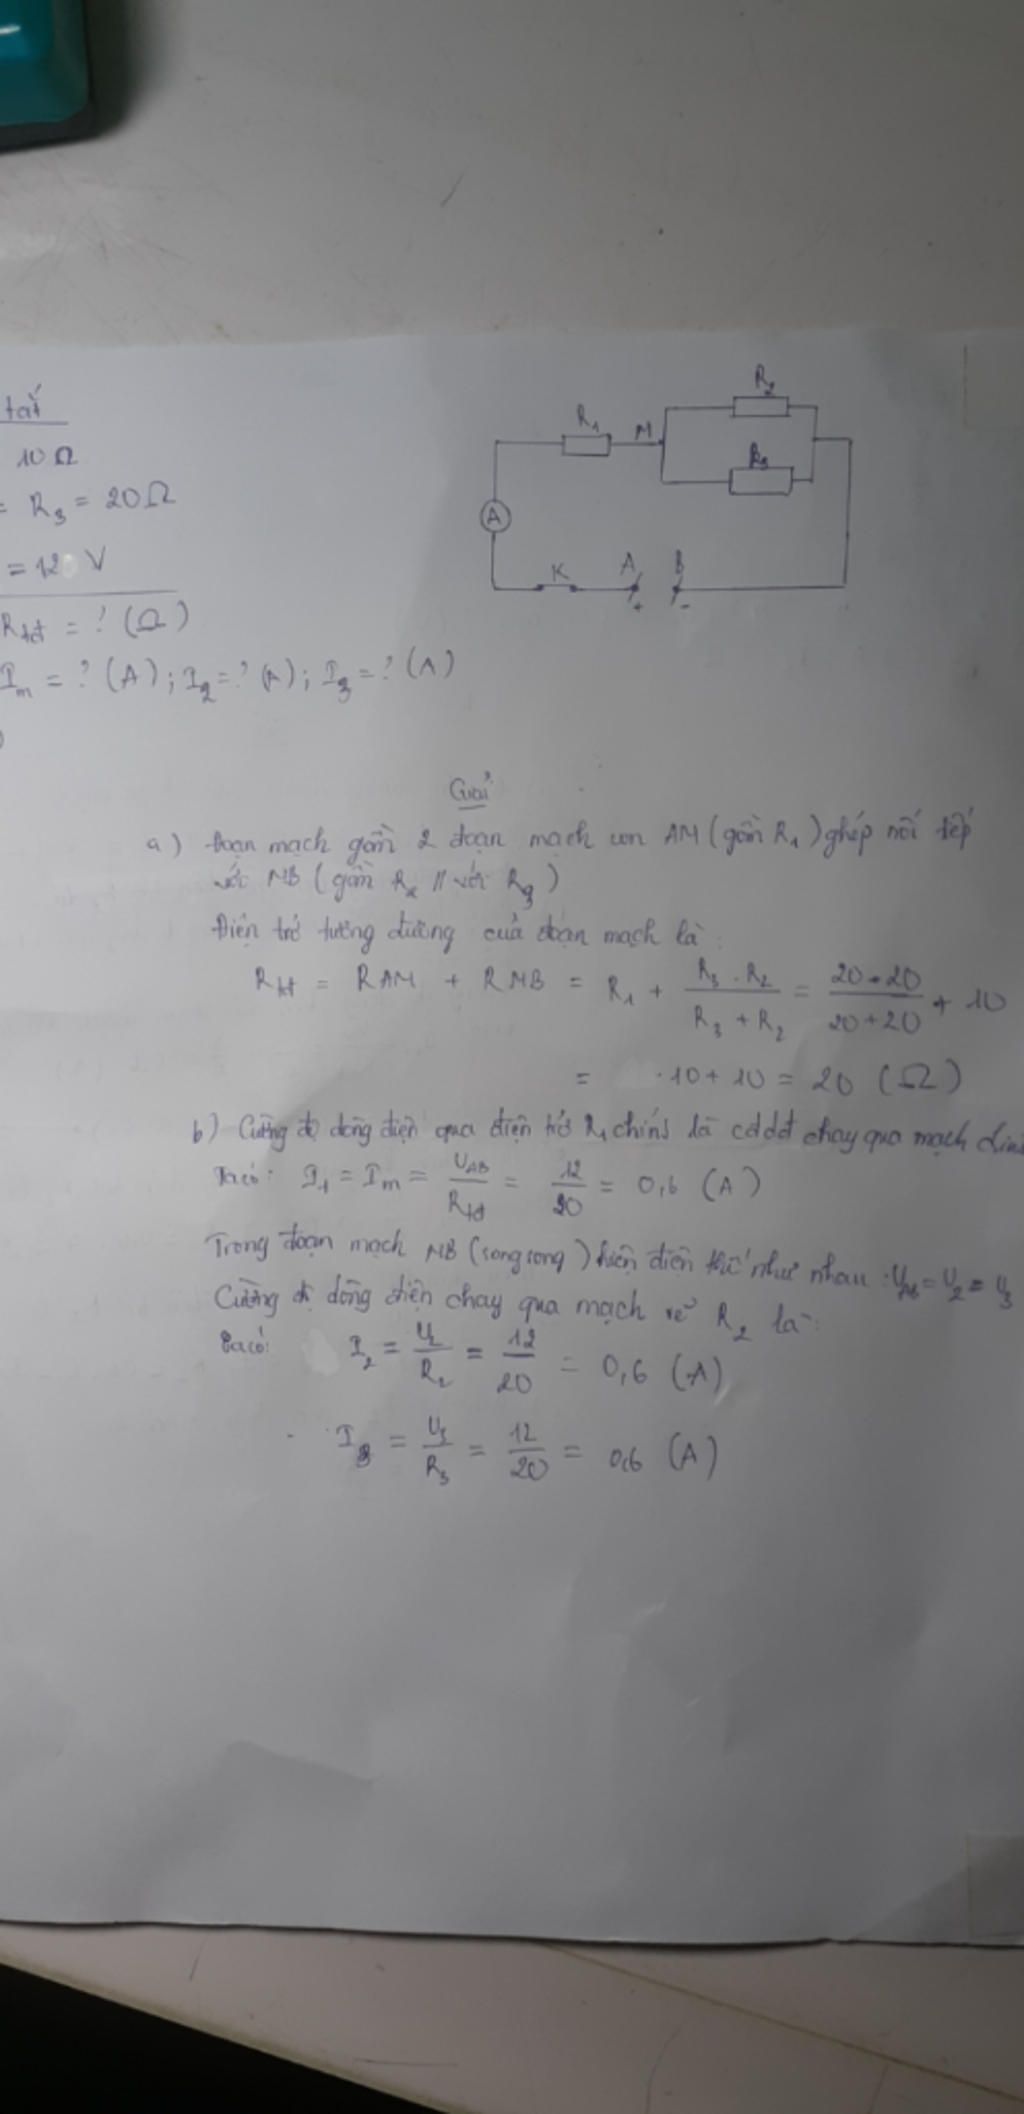 tắt
10 Ω
= R3 = 20 Ω
= 12 V
Rtđ = ? (Ω)
Im = ? (A); I2 = ? (A); I3 = ? (A)
R1
M
R2
R3
A
K
A
B
+
-
Giải
a) Đoạn mạch gồm 2 đoạn mạch con AM (gồm R1) ghép nối tiếp
với MB (gồm R2 // với R3)
Điện trở tương đương của đoạn mạch là:
Rtđ = RAM + RMB = R1 + R3 . R2 / R3 + R2 = 20 . 20 / 20 + 20 + 10
= 10 + 10 = 20 (Ω)
b) Cường độ dòng điện qua điện trở R1 chính là cddđ chạy qua mạch
Ta có: I1 = Im = UAB / Rtđ = 12 / 20 = 0,6 (A)
Trong đoạn mạch MB (song song) hiện điện thế như nhau: = U2 = U3
Cường độ dòng điện chạy qua mạch rẽ R2 là:
Ta có: I2 = U2 / R2 = 12 / 20 = 0,6 (A)
I3 = U3 / R3 = 12 / 20 = 0,6 (A)